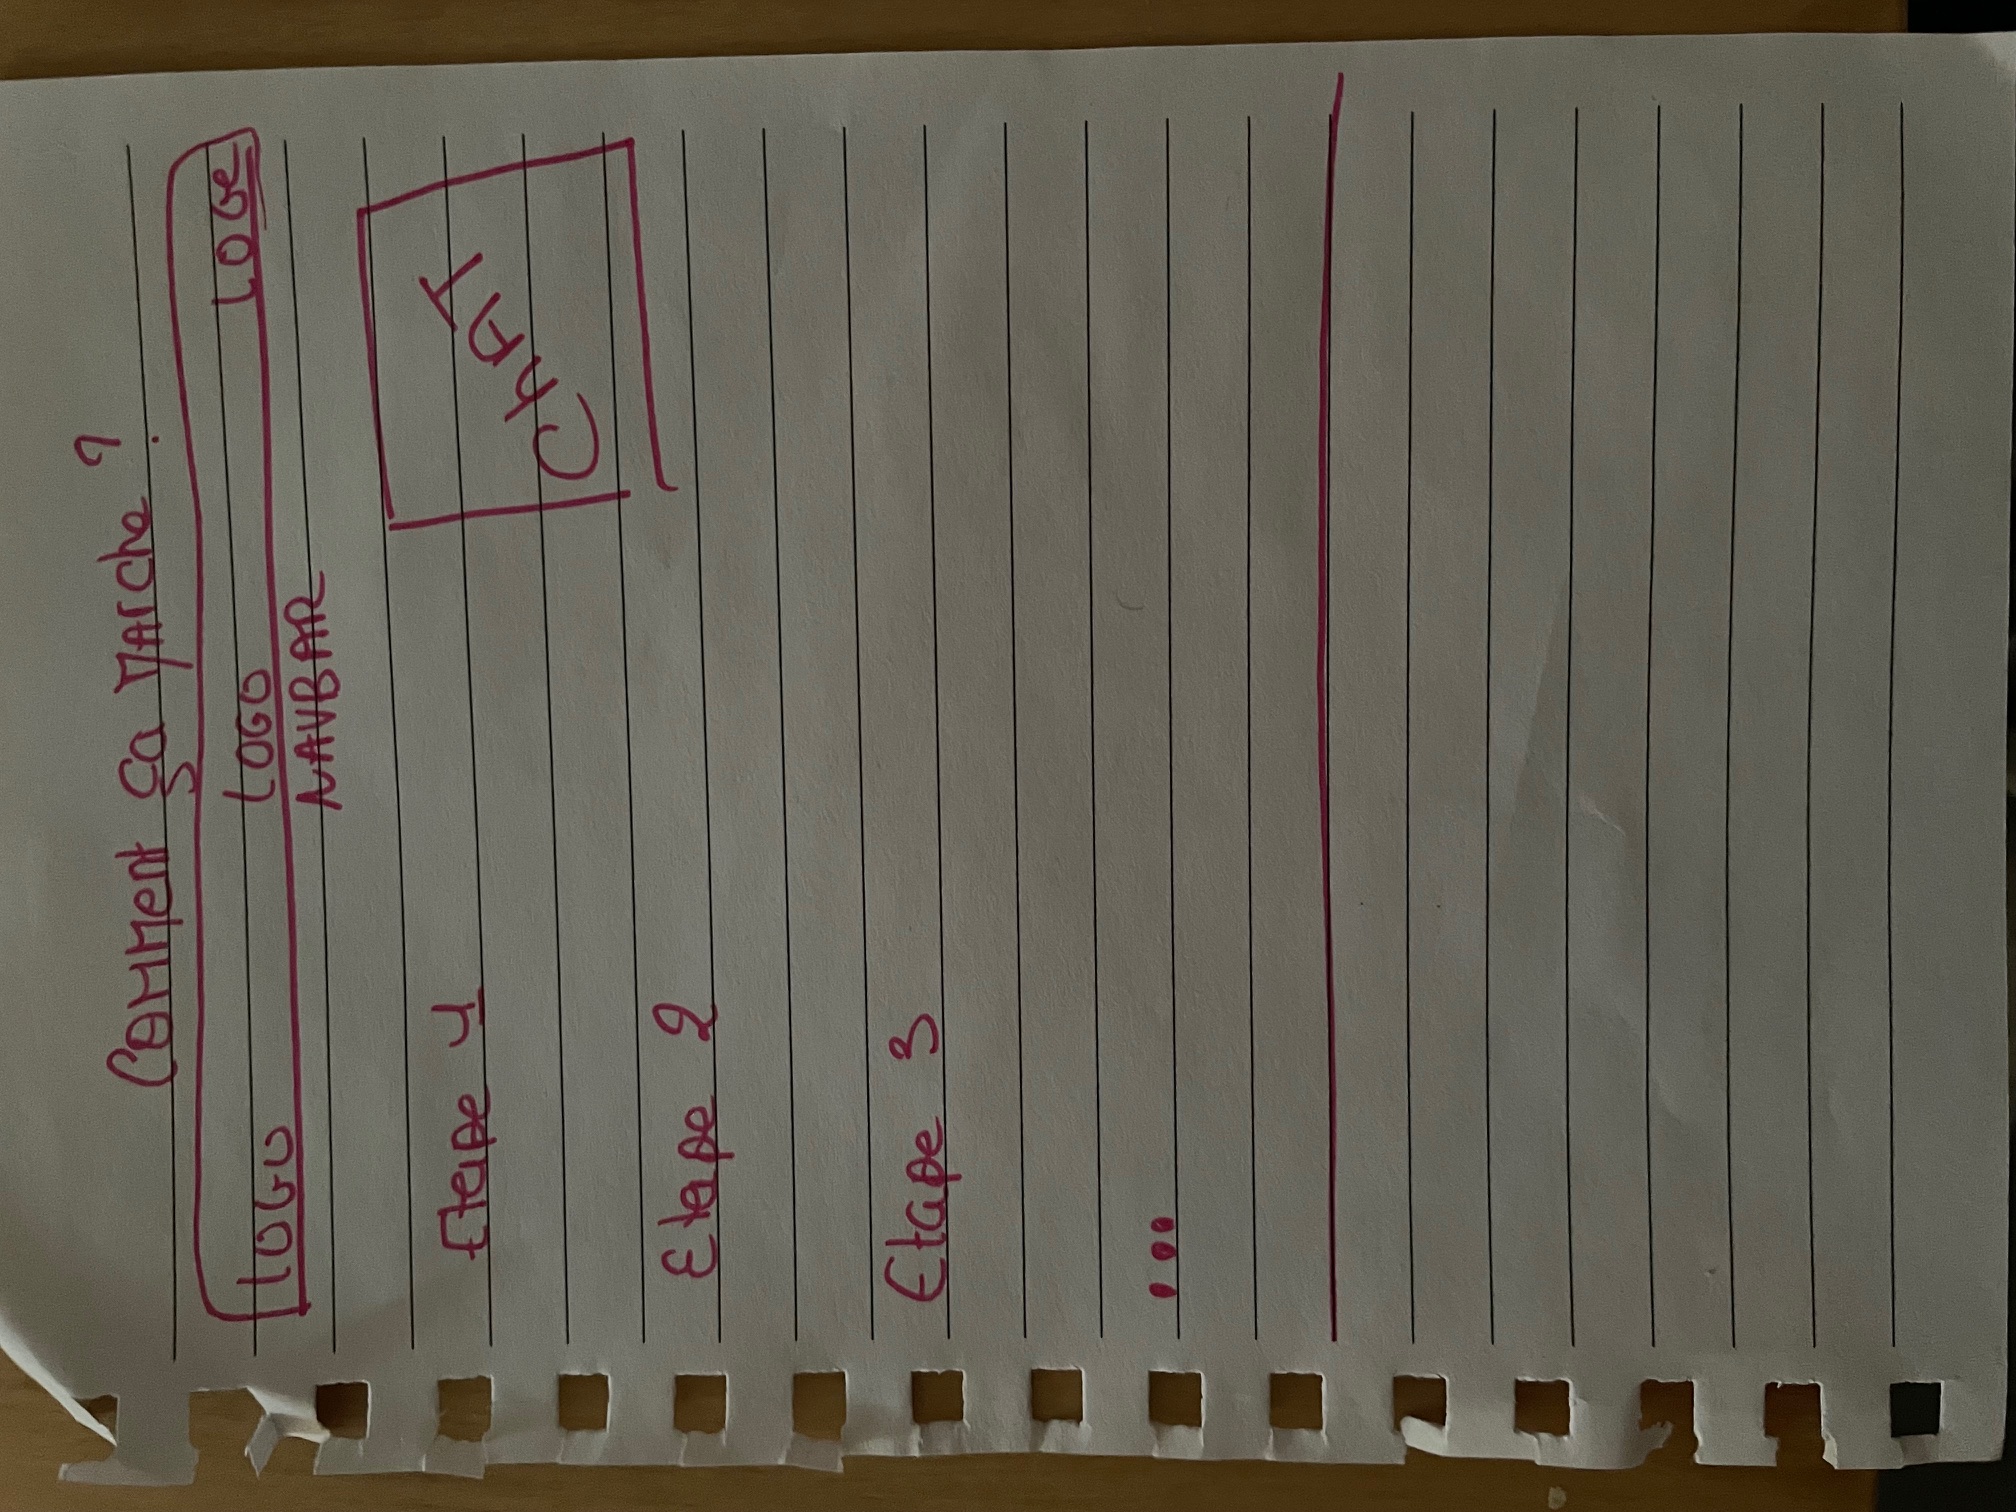 Comment ça marche ?
LOGO LOGO LOGe
NAVBAR
Etape 1
ChAT
Etape 2
Etape 3
...